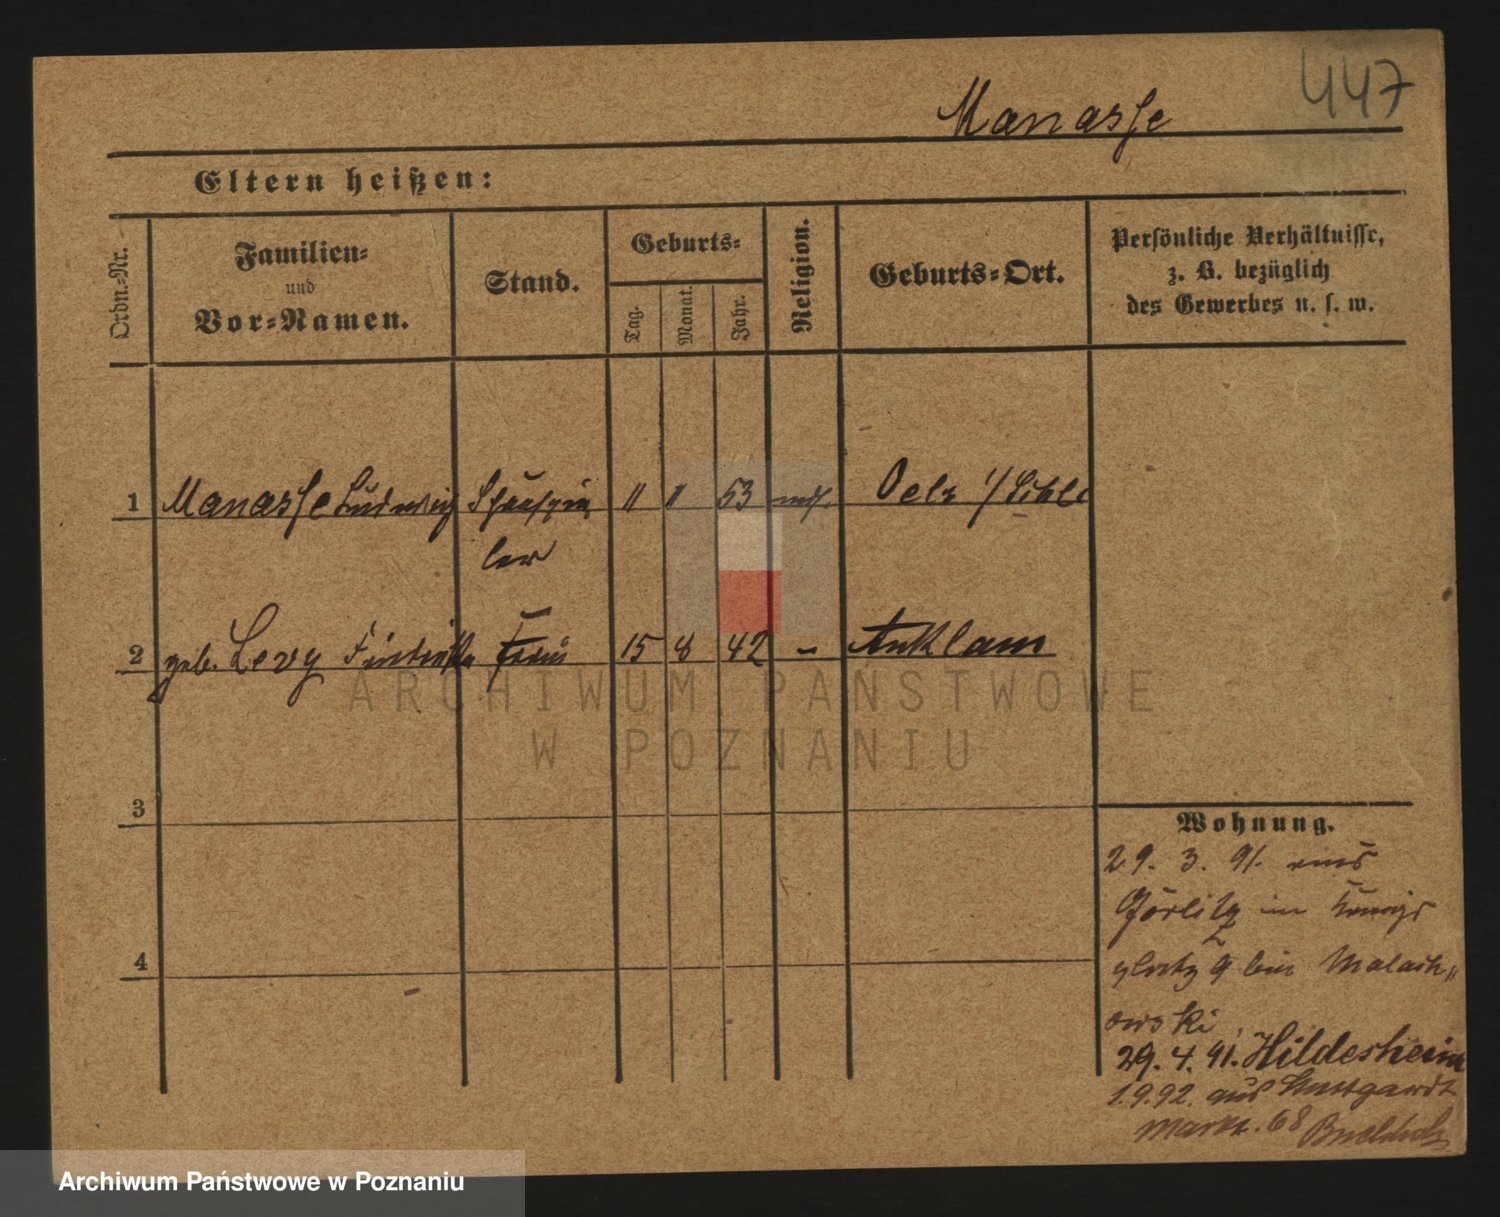 447
Manasse
Eltern heißen:
Ordn.-Nr.
Familien-
und
Vor-Namen.
Stand.
Geburts-
Tag.
Monat.
Jahr.
Religion.
Geburts-Ort.
Persönliche Verhältnisse,
z. B. bezüglich
des Gewerbes u. s. w.
1 Manasse Ludwig Schauspie 11 53 Oels
ler
2 geb. Levy 15 8 42 - Anklam
ARCHIWUM PAŃSTWOWE
W POZNANIU
3
Wohnung.
29. 3. 91. aus
Görlitz Königs
platz 9 bei Malach„
owski
4
29. 4. 91. Hildesheim
1.9.92. aus Stuttgardt
Markt. 68
Archiwum Państwowe w Poznaniu